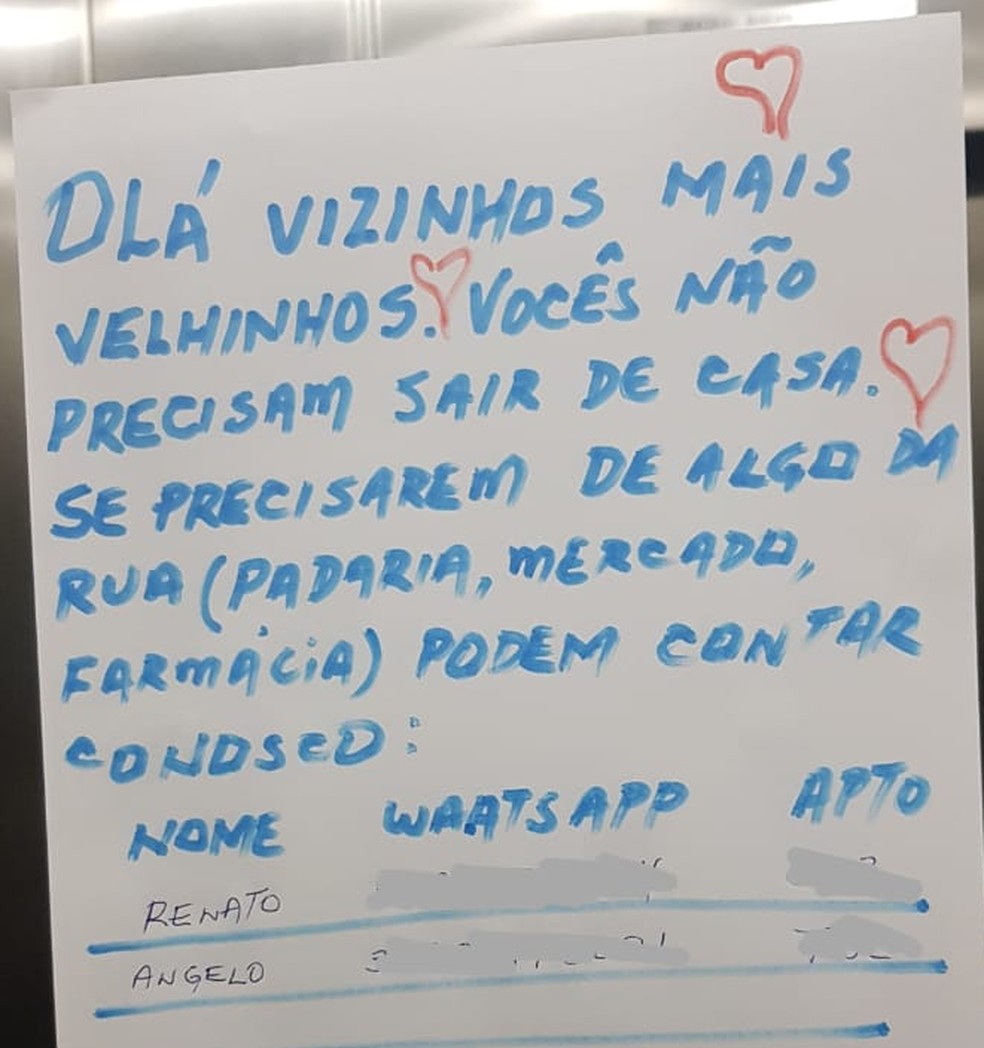 OLÁ VIZINHOS MAIS
VELHINHOS. VOCÊS NÃO
PRECISAM SAIR DE CASA.
SE PRECISAREM DE ALGO DA
RUA (PADARIA, MERCADO,
FARMÁCIA) PODEM CONTAR
CONOSCO:
NOME WAATSAPP APTO
RENATO
ANGELO